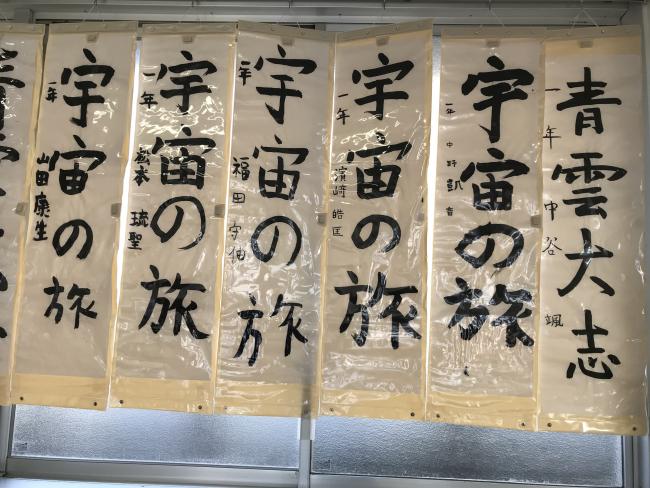 青雲大志
一年 中谷 颯
宇宙の旅
一年 中野 凱音
宇宙の旅
一年 濱﨑 皓匡
宇宙の旅
一年 福田
宇宙の旅
一年 松本 琉聖
宇宙の旅
一年 山田康生